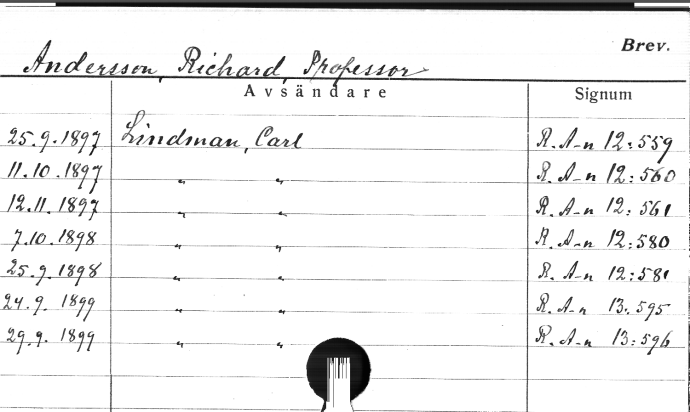 Brev.
Andersson, Richard, Professor
Avsändare Signum
25.9.1897 Lindman, Carl R. A-n 12:559
11.10.1897 " " R. A-n 12:560
12.11.1897 " " R. A-n 12:561
7.10.1898 " " R. A-n 12:580
25.9.1898 " " R. A-n 12:581
24.9.1899 " " R. A-n 13.595
29.9.1899 " " R. A-n 13:596